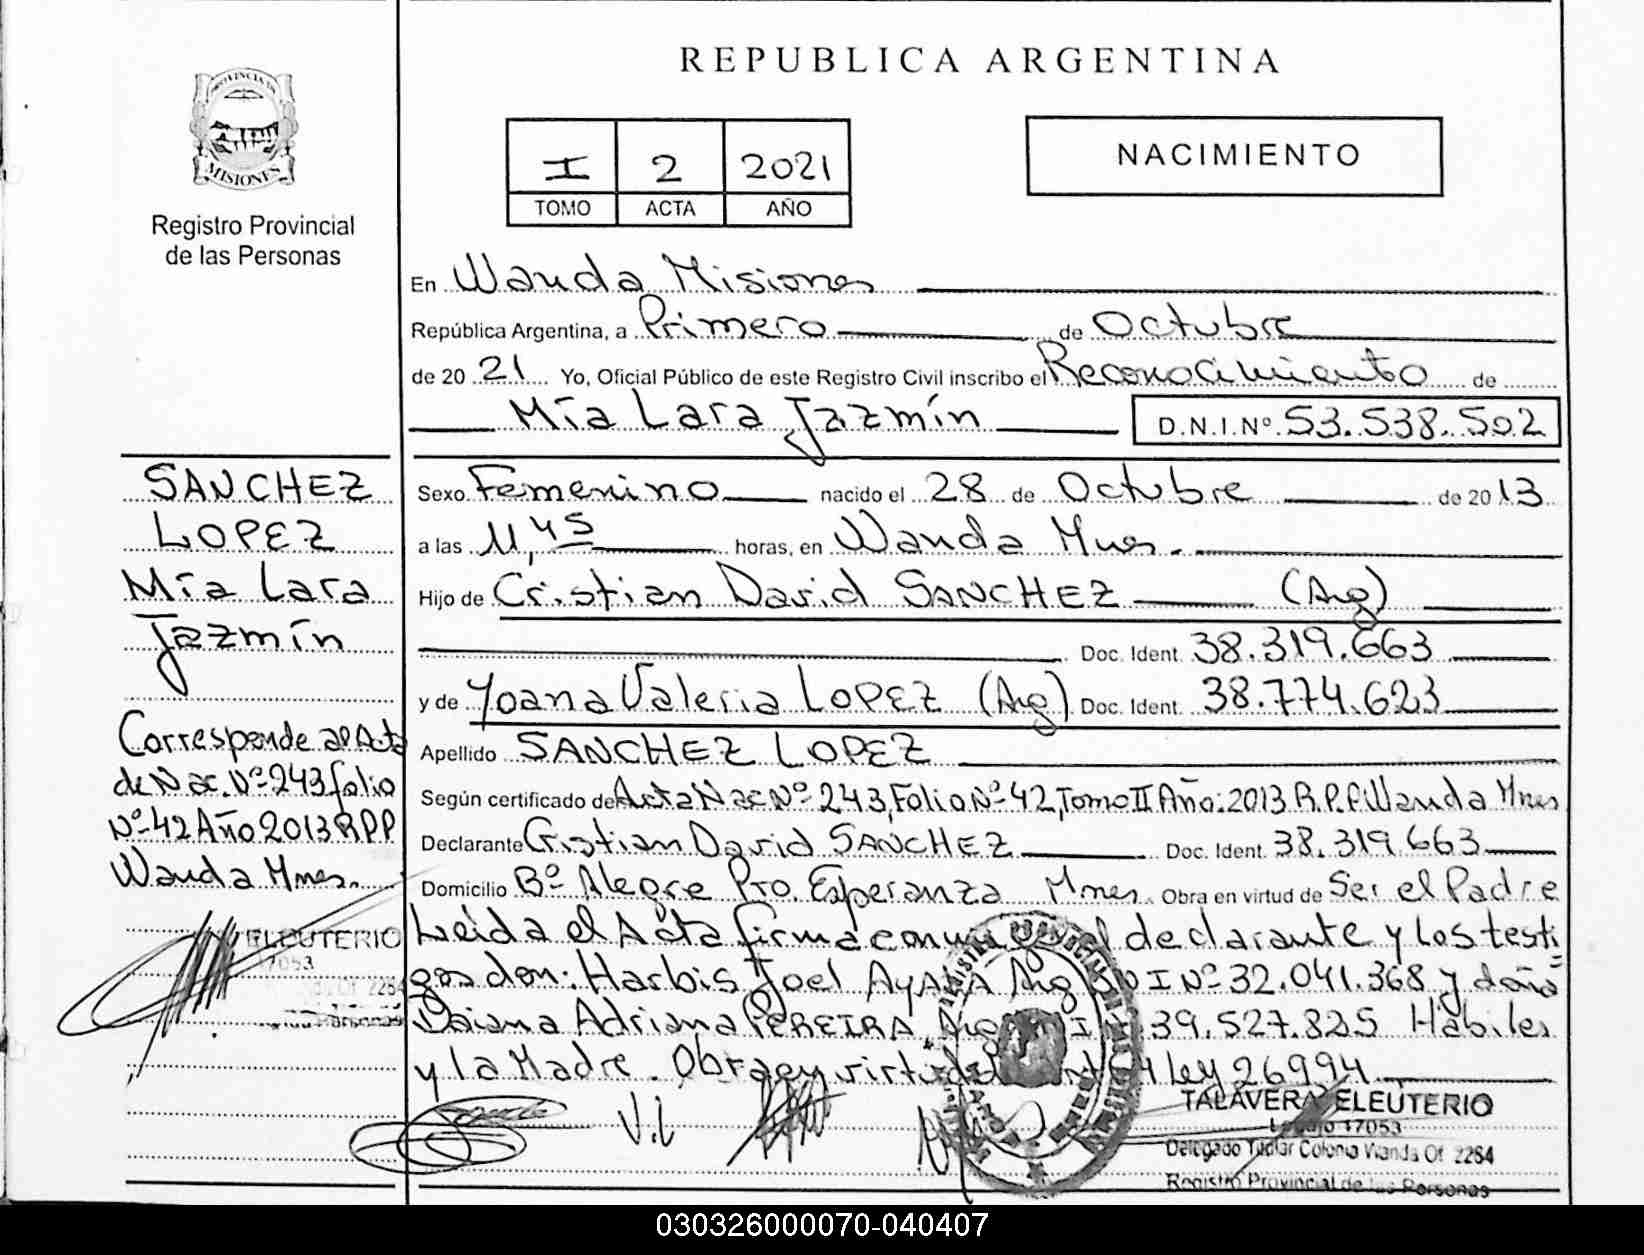 REPUBLICA ARGENTINA
PROVINCIA DE
MISIONES
Registro Provincial
de las Personas
I 2 2021
TOMO ACTA AÑO
NACIMIENTO
En Wanda Misiones
República Argentina, a Primero de Octubre
de 20 21 Yo, Oficial Público de este Registro Civil inscribo el Reconocimiento de
Mía Lara Jazmín D.N.I.Nº 53.538.502
SANCHEZ
LOPEZ
Mía Lara
Jazmín
Corresponde al Acta
de Nac. Nº 243 folio
Nº 42 Año 2013 R.P.P
Wanda Mnes.
Sexo Femenino nacido el 28 de Octubre de 20 13
a las 11,45 horas, en Wanda Mnes.
Hijo de Cristian David SANCHEZ (Arg)
Doc. Ident. 38.319.663
y de Yoana Valeria LOPEZ (Arg) Doc. Ident. 38.774.623
Apellido SANCHEZ LOPEZ
Según certificado de Acta Nac Nº 243, Folio Nº 42, Tomo II Año: 2013 R.P.P. Wanda Mnes
Declarante Cristian David SANCHEZ Doc. Ident. 38.319.663
Domicilio Bº Alegre Pto. Esperanza Mnes. Obra en virtud de Ser el Padre
Leída el Acta firma conmigo el declarante y los testi
gos don: Harbis Joel AYALA Arg DNI Nº 32.041.368 y doña
Daiana Adriana PEREIRA Arg 39.527.825 Hábiles
y la Madre. Obra en virtud Ley 26994
ELEUTERIO
17053
2284
V.L
TALAVERA ELEUTERIO
Legajo 17053
Delegado Titular Colonia Wanda Of. 2284
Registro Provincial de las Personas
030326000070-040407